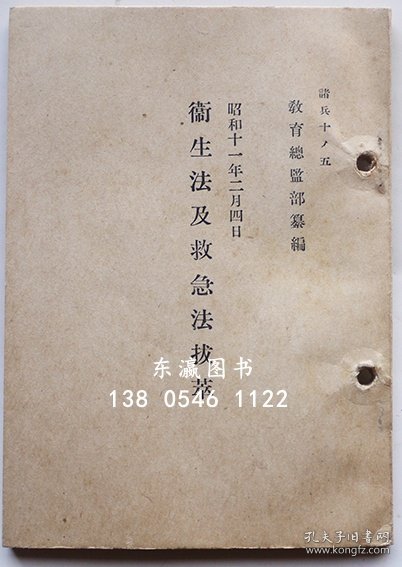 諸兵十ノ五
教育總監部纂編
昭和十一年二月四日
衞生法及救急法拔萃
东瀛图书
138 0546 1122
孔夫子旧书网